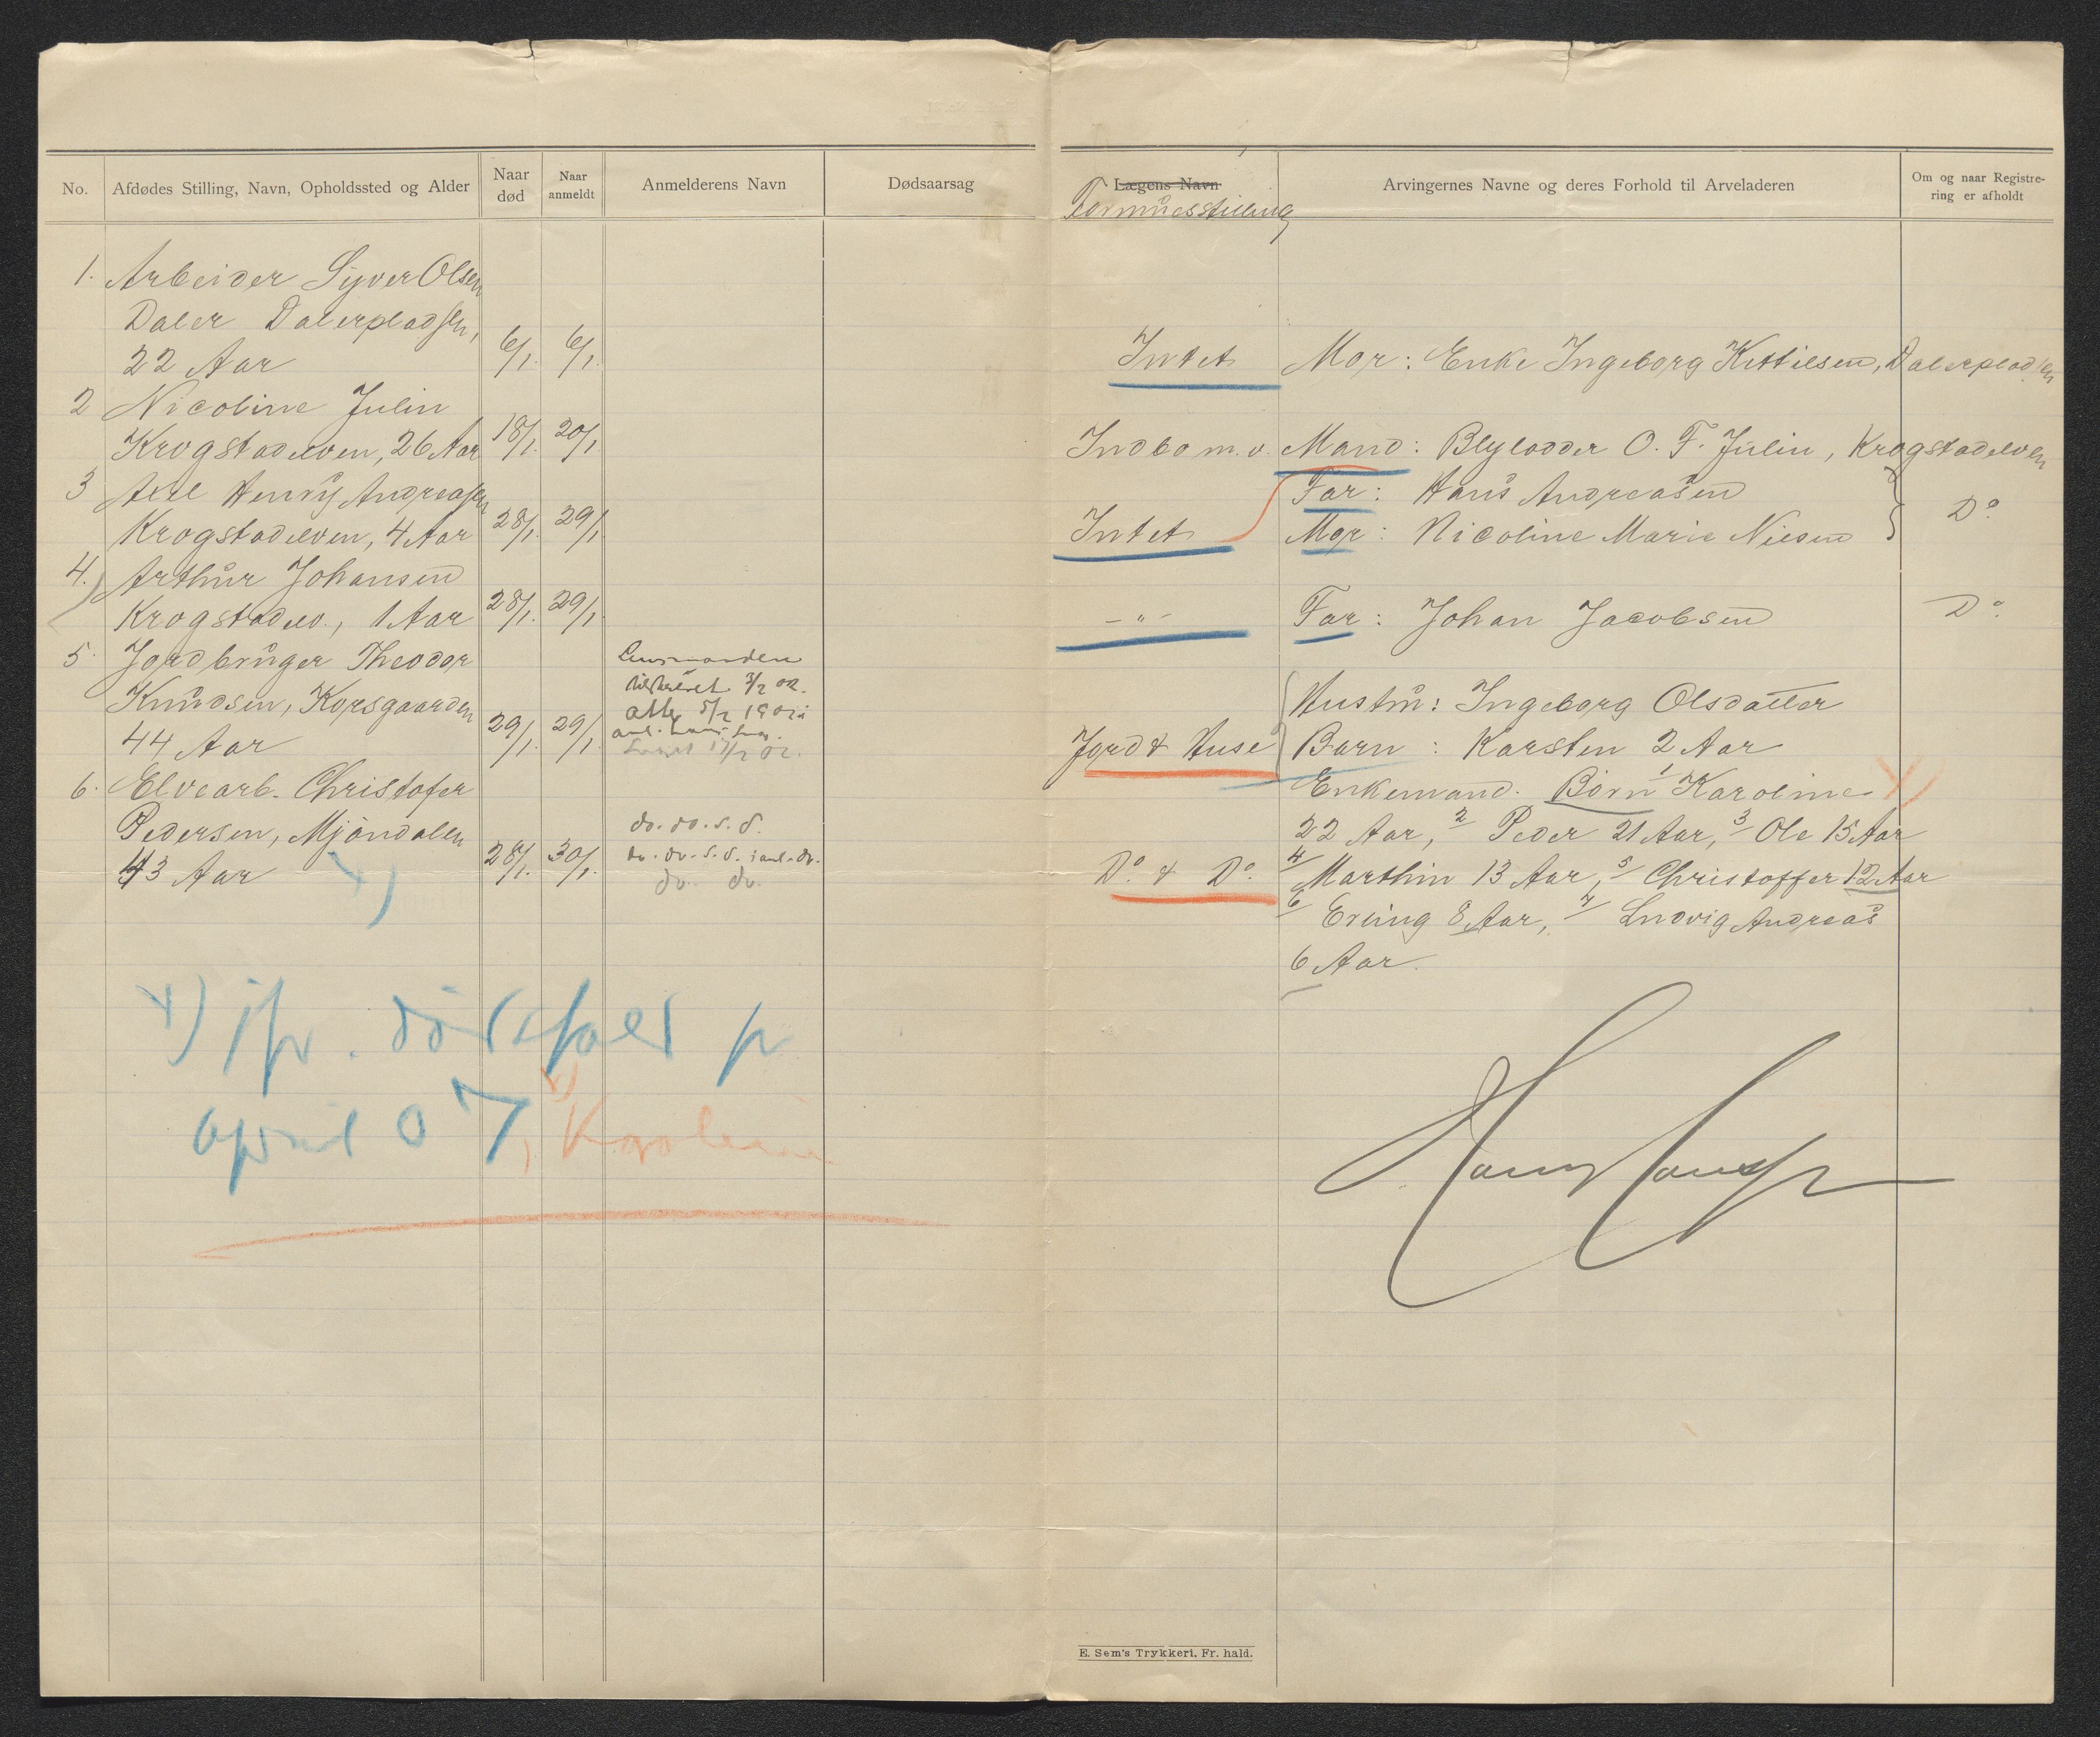 No. Afdødes Stilling, Navn, Opholdssted og Alder Naar død Naar anmeldt Anmelderens Navn Dødsaarsag
Lægens Navn Arvingernes Navne og deres Forhold til Arveladeren Om og naar Registrering er afholdt
Formuesstilling
1. Arbeider Syver Olsen
Daler Dalerpladsen,
22 Aar 6/1. 6/1. Intet Mor: Enke Ingeborg Kittilsen, Dalerpladsen
2 Nicoline Julin
Krogstadelven, 26 Aar 18/1. 20/1 Indbo m.v. Mand: Blylodder O. F. Julin, Krogstadelven
3 Axel Henry Andreasen Far: Hans Andreasen
Krogstadelven, 4 Aar 28/1. 29/1 Intet Mor: Nicoline Marie Nilsen Do.
4. Arthur Johansen
Krogstadelv., 1 Aar 28/1. 29/1. -"- Far: Johan Jacobsen Do.
5. Jordbruger Theodor Lensmanden
tilskrevet 3/2 02.
Knudsen, Korsgaarden 5/2 1902 Hustru: Ingeborg Olsdatter
44 Aar 29/1. 29/1. 17/2 02. Jord & Huse Barn: Karsten 2 Aar
6. Elvearb. Christofer Enkemand. Børn 1/ Karoline x)
Pedersen, Mjøndalen do. do. s. d. 22 Aar, 2/ Peder 21 Aar, 3/ Ole 15 Aar
43 Aar x) 28/1. 30/1. do. do. s. d. i anl. do. Do. & Do. 4/ Marthin 13 Aar, 5/ Christoffer 12 Aar
do. do. 6/ Erling 8 Aar, 7/ Ludvig Andreas
6 Aar.
x) jfr. dødsfald p
april 07, x) Karoline
E. Sem's Trykkeri, Fr. hald.